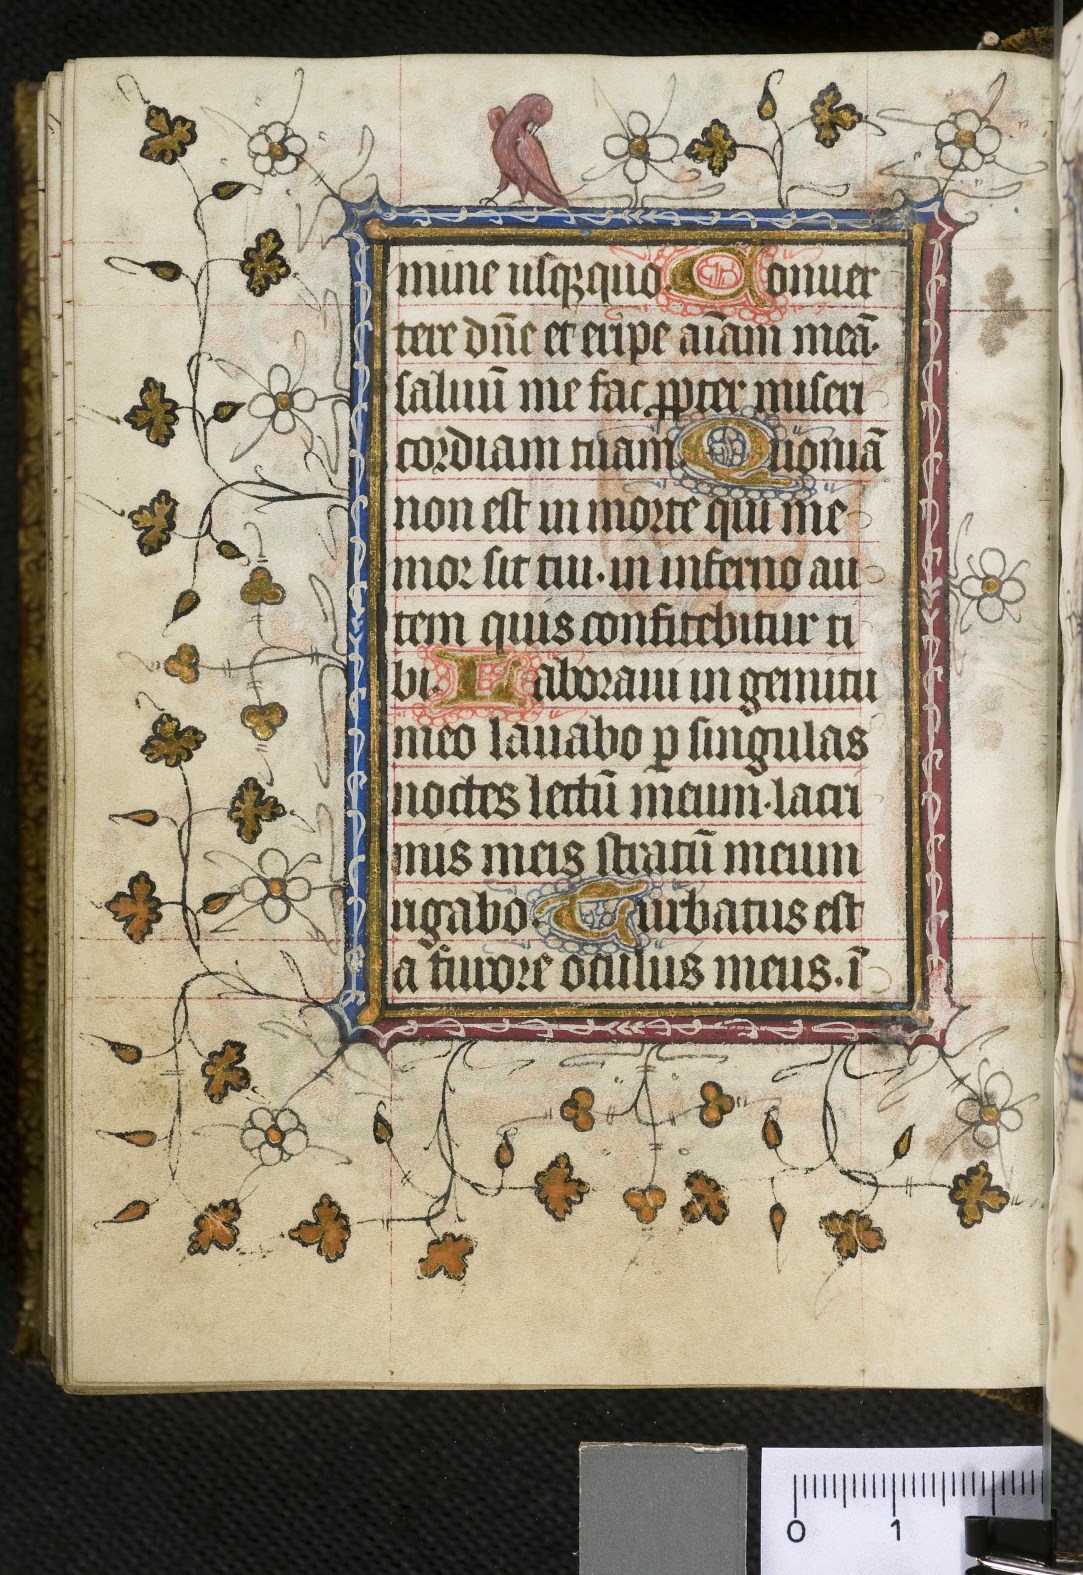 mine usqꝫquo. Conuer
tere dñe et eripe aīam meā.
saluū me fac ꝓpter miseri
cordiam tuam Quoniā
non est in morte qui me
mor sit tui. in inferno au
tem quis confitebitur ti
bi. Laboraui in gemitu
meo lauabo ꝑ singulas
noctes lectū meum. lacri
mis meis stratū meum
rigabo. Turbatus est
a furore oculus meus. ī
0 1